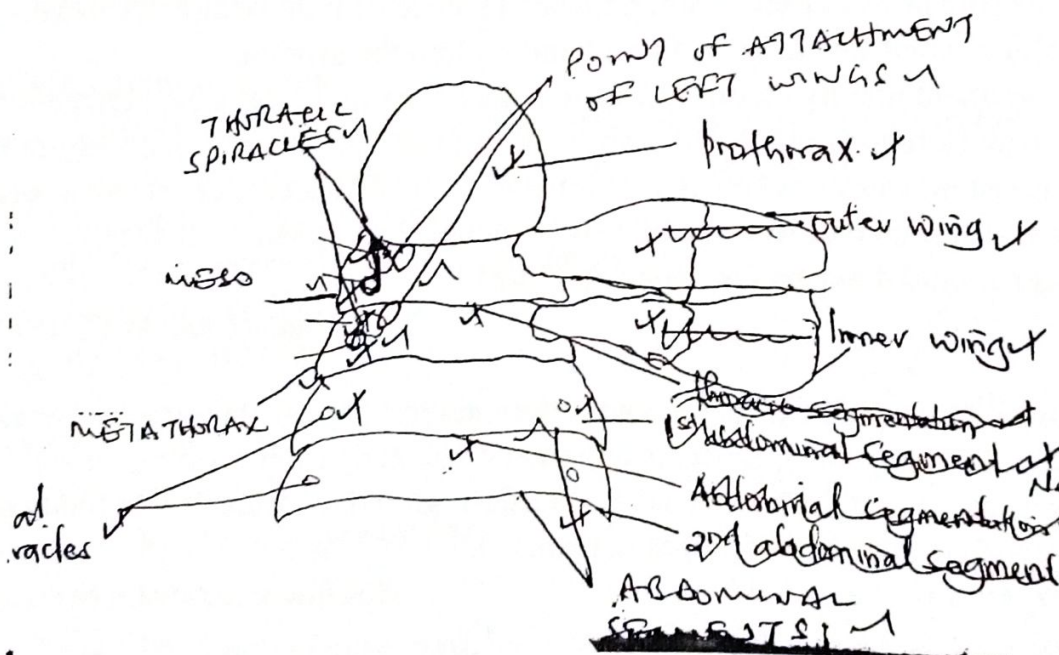 POINT OF ATTACHMENT
OF LEFT WINGS
THORACIC
SPIRACLES
Prothorax
outer wing
MESO
Inner wing
METATHORAX
1st abdominal segment
Abdominal segmentation
2nd abdominal segment
al
racles
ABDOMINAL